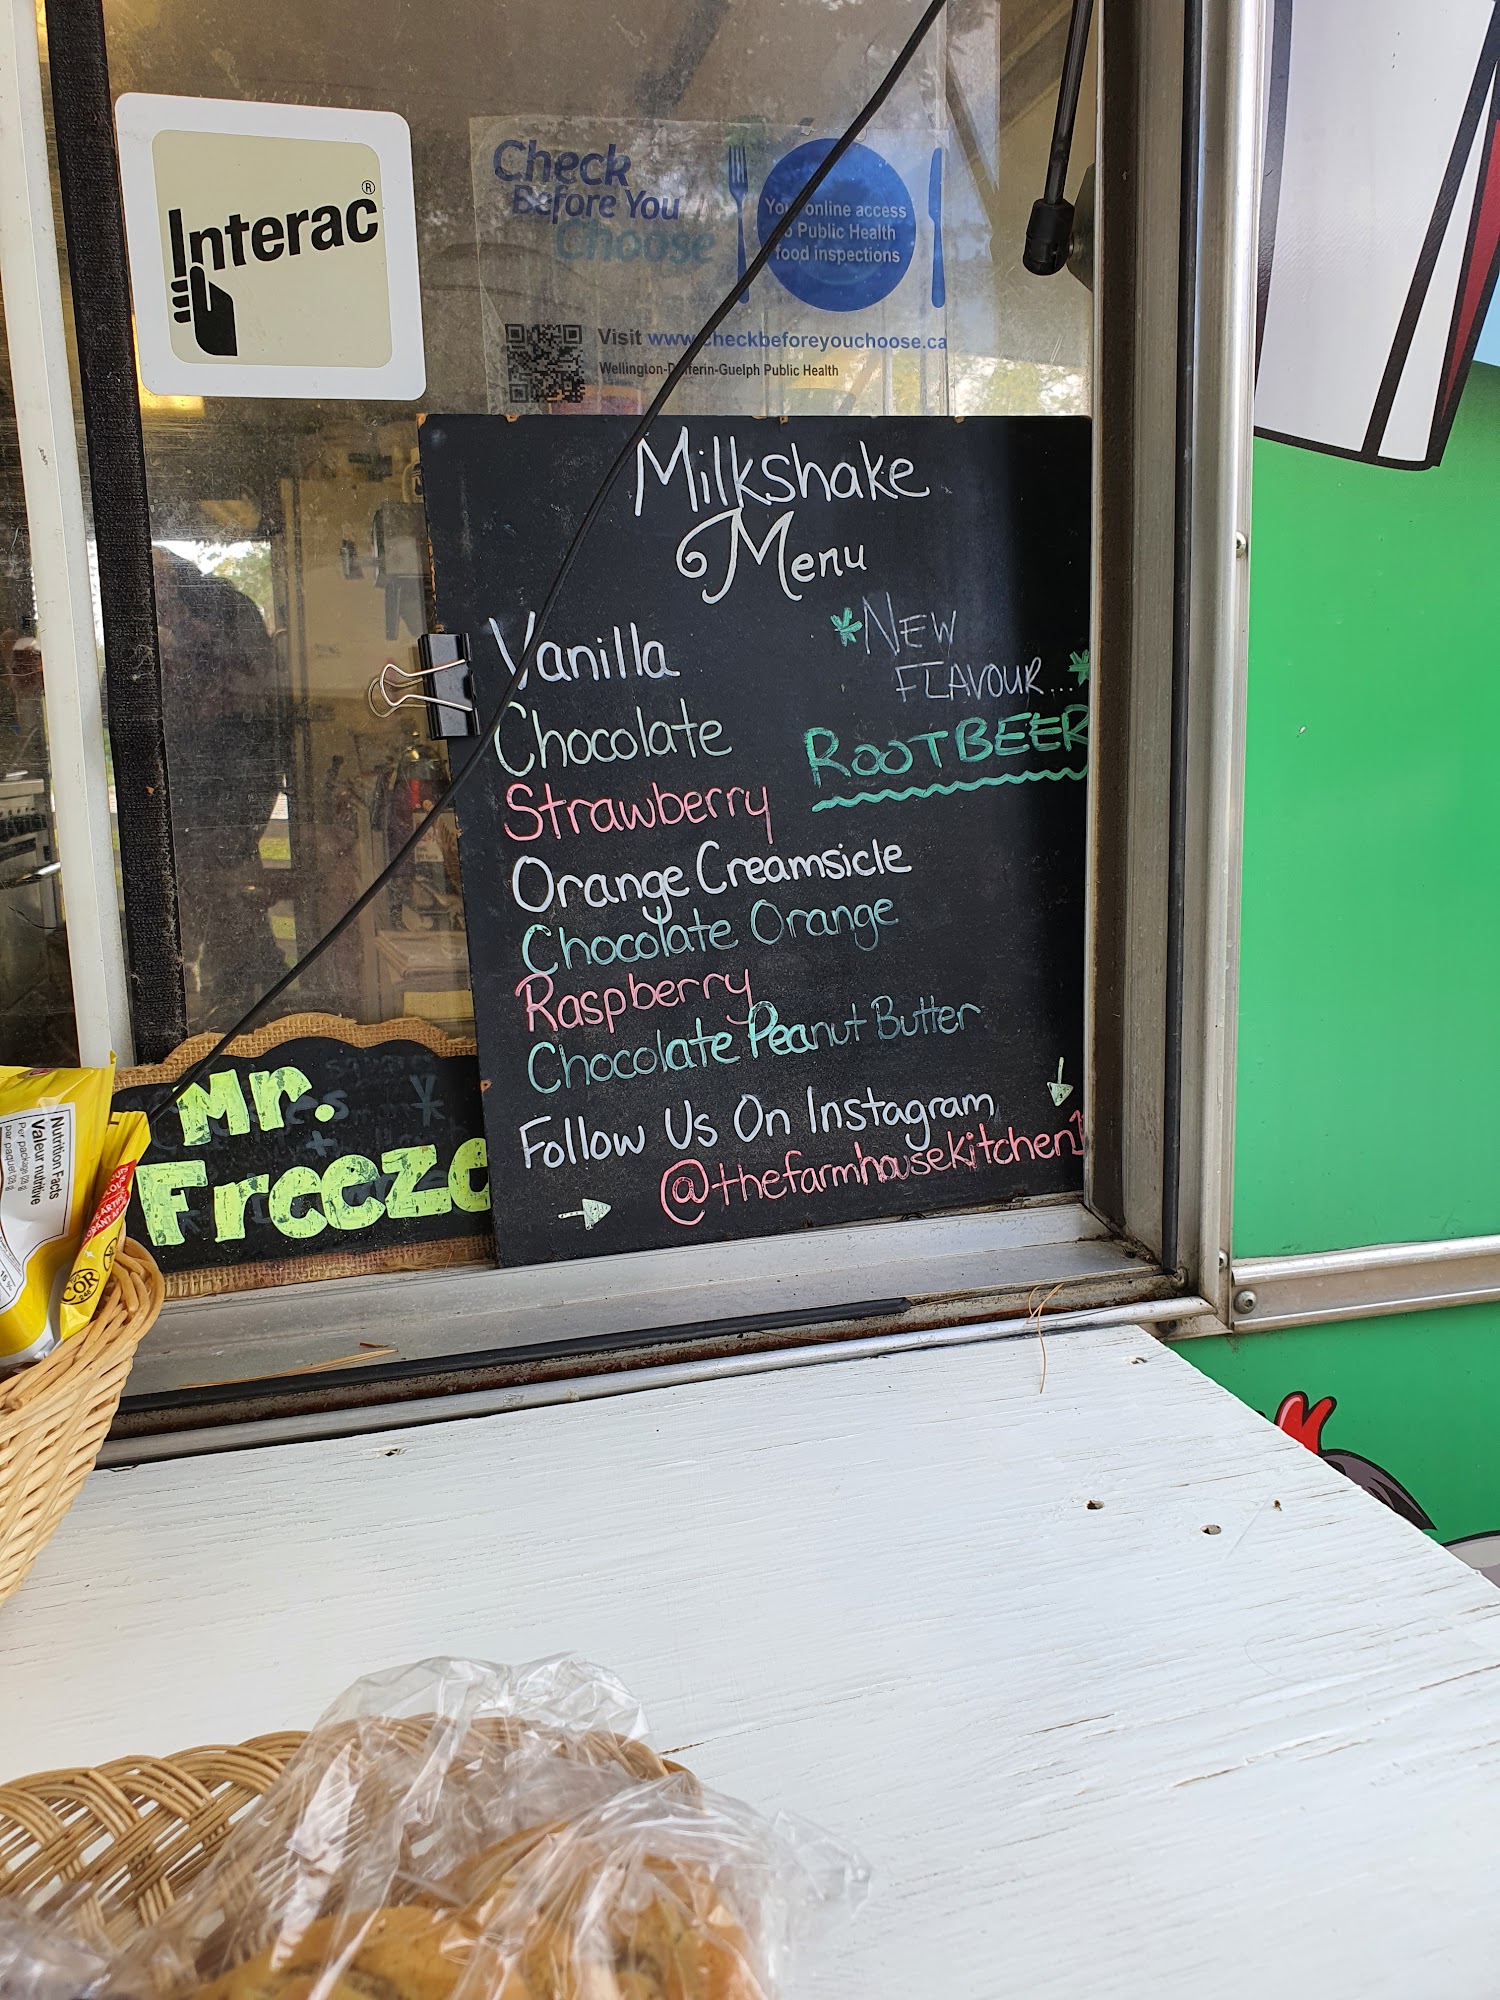 Interac®
Check
Before You
Choose
online access
Public Health
food inspections
Visit www.checkbeforeyouchoose.ca
Wellington-Dufferin-Guelph Public Health
Milkshake
Menu
Vanilla
Chocolate
Strawberry
Orange Creamsicle
Chocolate Orange
Raspberry
Chocolate Peanut Butter
*NEW
FLAVOUR...*
ROOTBEER
Follow Us On Instagram
@thefarmhousekitchen1
Mr.
Freeze
Nutrition Facts
Valeur nutritive
COR